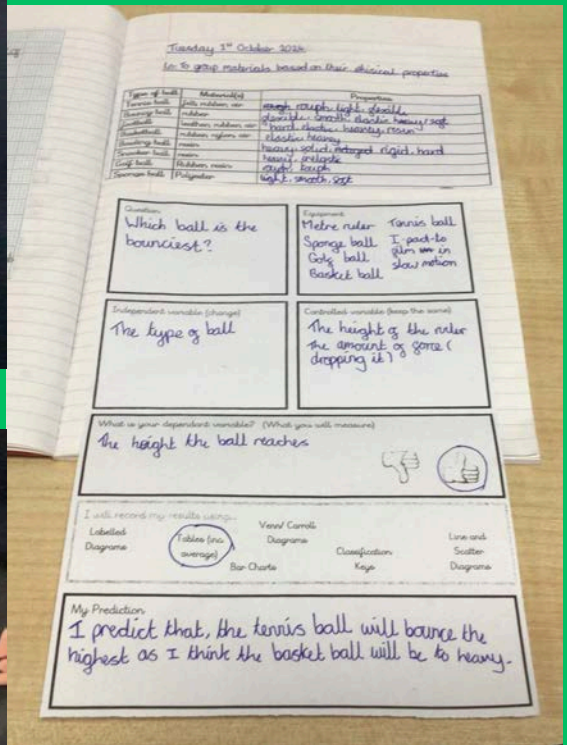 Tuesday 1st October 2024
Lo: To group materials based on their phisical properties
Type of ball Material(s) Properties
Tennis ball felt, rubber, air rough, light, flexible
rubber flexible, smooth, elastic heavy/soft
Football leather, rubber, air hard, elastic, heavy
Basketball rubber, nylon, air elastic heavy
Bowling ball resin heavy, solid, rigid, hard
resin heavy, inelastic
Golf ball Rubber, resin rough, tough
Sponge ball Polyester light, smooth, soft
Question
Which ball is the
bounciest?
Equipment
Metre ruler Tennis ball
Sponge ball I-pad-to
Golf ball film in
Basket ball slow motion
Independent variable (change)
The type of ball
Controlled variable (keep the same)
The height of the ruler
The amount of force (
dropping it)
What is your dependant variable? (What you will measure)
The height the ball reaches
I will record my results using...
Labelled
Diagrams
Tables (inc.
average)
Bar Charts
Venn/ Carroll
Diagrams
Classification
Keys
Line and
Scatter
Diagrams
My Prediction
I predict that, the tennis ball will bounce the
highest as I think the basket ball will be to heavy.